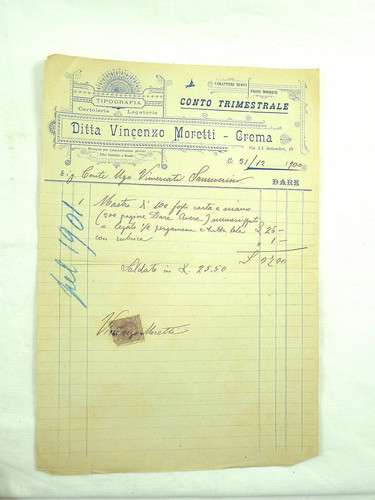 CARATTERI NUOVI
PREZZI MODESTI
TIPOGRAFIA
Cartoleria Legatoria
CONTO TRIMESTRALE
Ditta Vincenzo Moretti - Crema
Via XX Settembre,
31/12 1900
Sig Conte Ugo Vimercati Sanseverino
DARE
1 Mastro di 400 fogli carta a mano
(200 pagine Dare Avere) numerizzato
e legato pergamena e tutta tela £ 26 -
con rubrica " 1 -
£ 27.00
Saldato in £. 25.50
pel 1901
Vincenzo Moretti